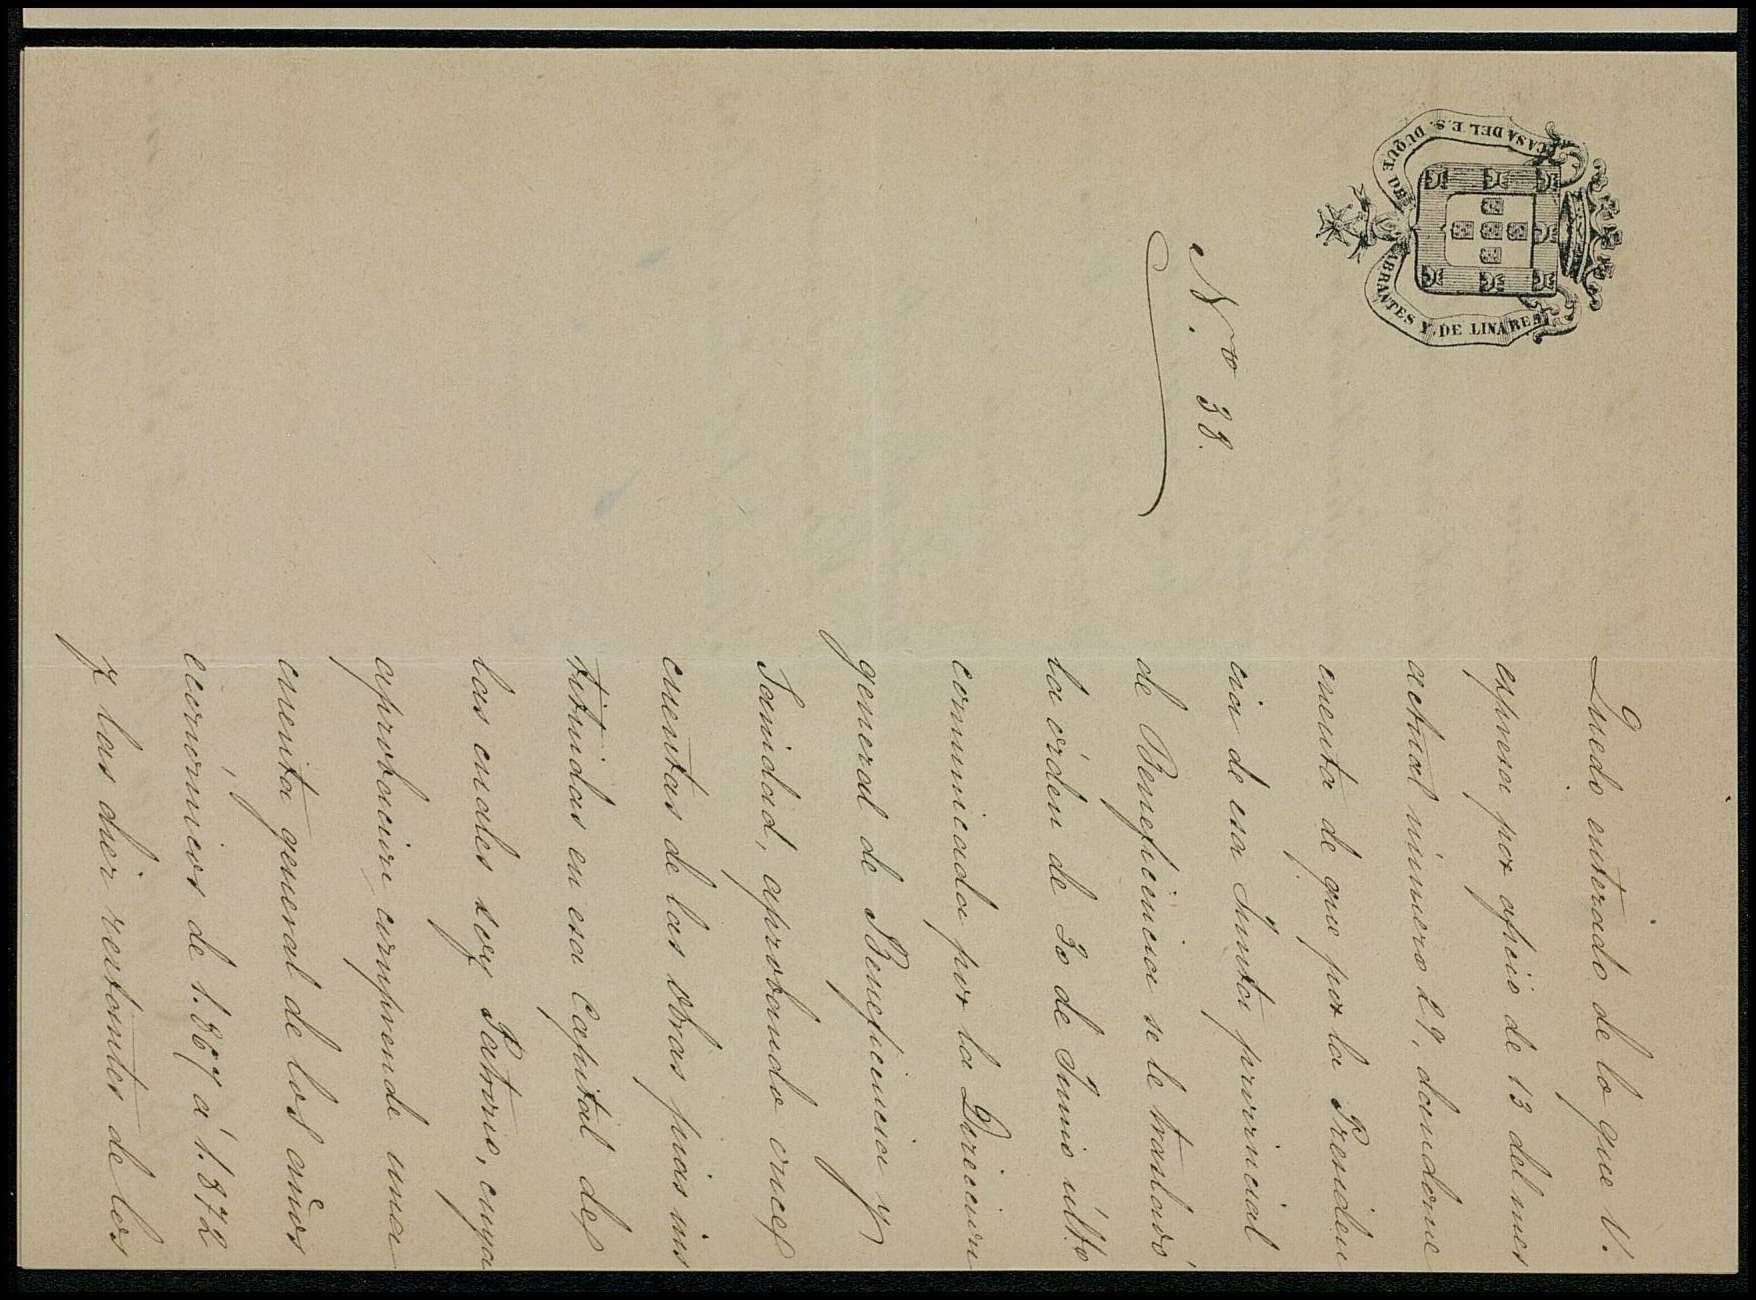 CASA DEL E.S. DUQUE DE ABRANTES Y DE LINARES
N.ro 38.
Quedo enterado de lo que V.
espresa por oficio de 13 del mes
actual número 29, dandome
cuenta de que por la Presiden
cia de esa Junta provincial
de Beneficencia se le trasladó
la órden de 30 de Junio últº.
comunicada por la Direccion
general de Beneficencia y
Sanidad, aprobando once
cuentas de las obras pias ins
tituidas en esa Capital de
las cuales soy Patrono, cuya
aprobacion comprende una
cuenta general de los años
económicos de 1.867 á 1.872
y las diez restantes de los